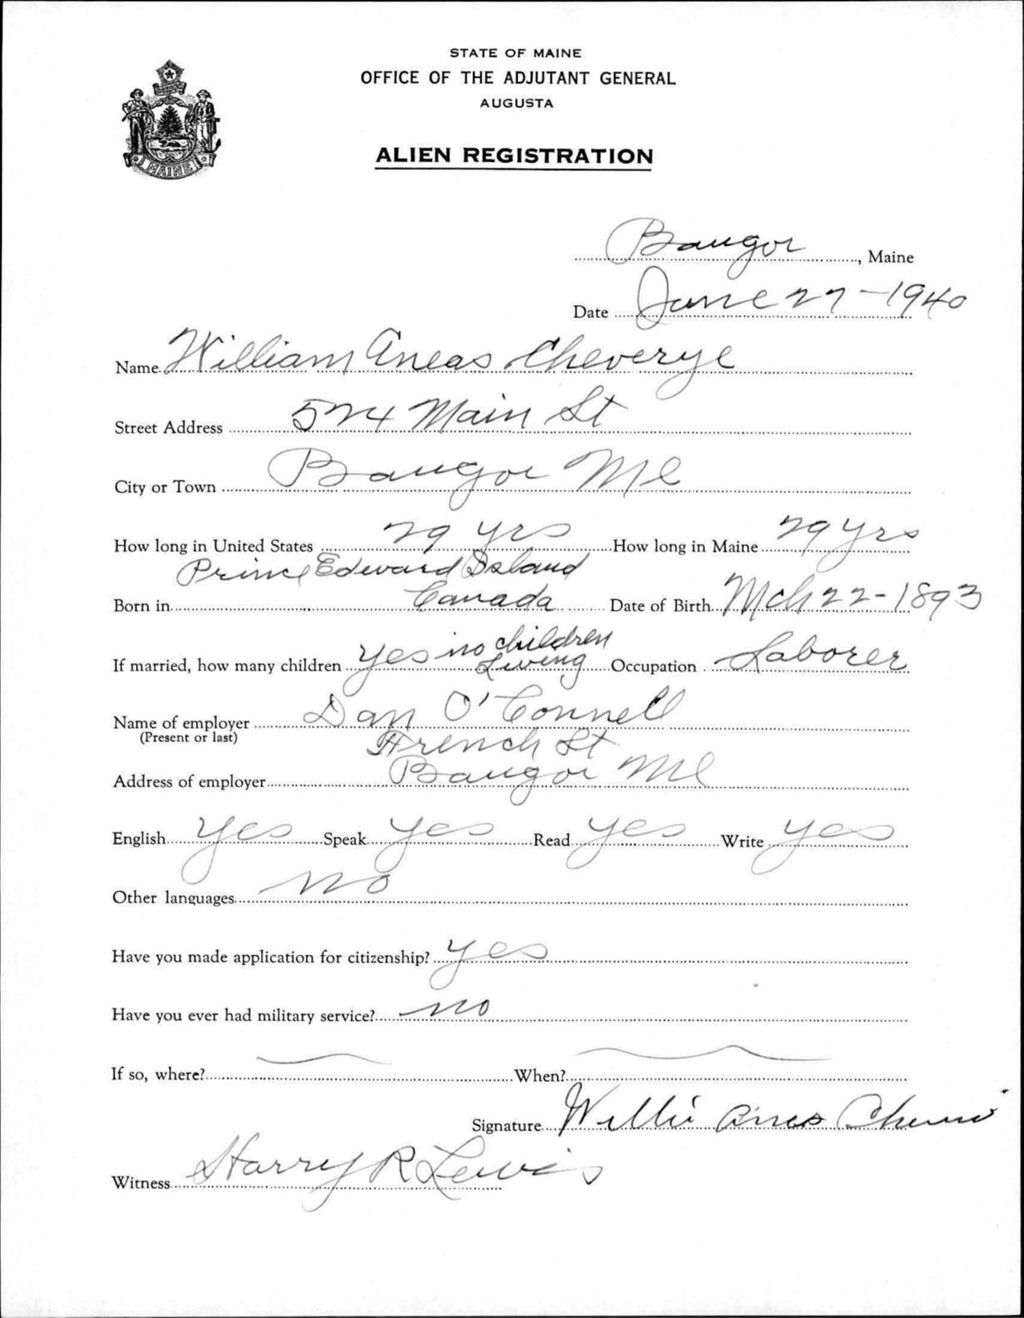 STATE OF MAINE
OFFICE OF THE ADJUTANT GENERAL
AUGUSTA
MAINE
ALIEN REGISTRATION
Bangor, Maine
Date June 27-1940
Name William Aneas Cheverye
Street Address 524 Main St
City or Town Bangor Me
How long in United States 29 yrs How long in Maine 29 yrs
Prince Edward Island
Born in Canada Date of Birth Mch 22-1893
no children
If married, how many children yes Living Occupation Laborer
Name of employer Dan O'Connell
(Present or last)
French St
Address of employer Bangor Me
English yes Speak yes Read yes Write yes
Other languages no
Have you made application for citizenship? yes
Have you ever had military service? no
If so, where? When?
Signature Willie
Witness Harry R Lewis